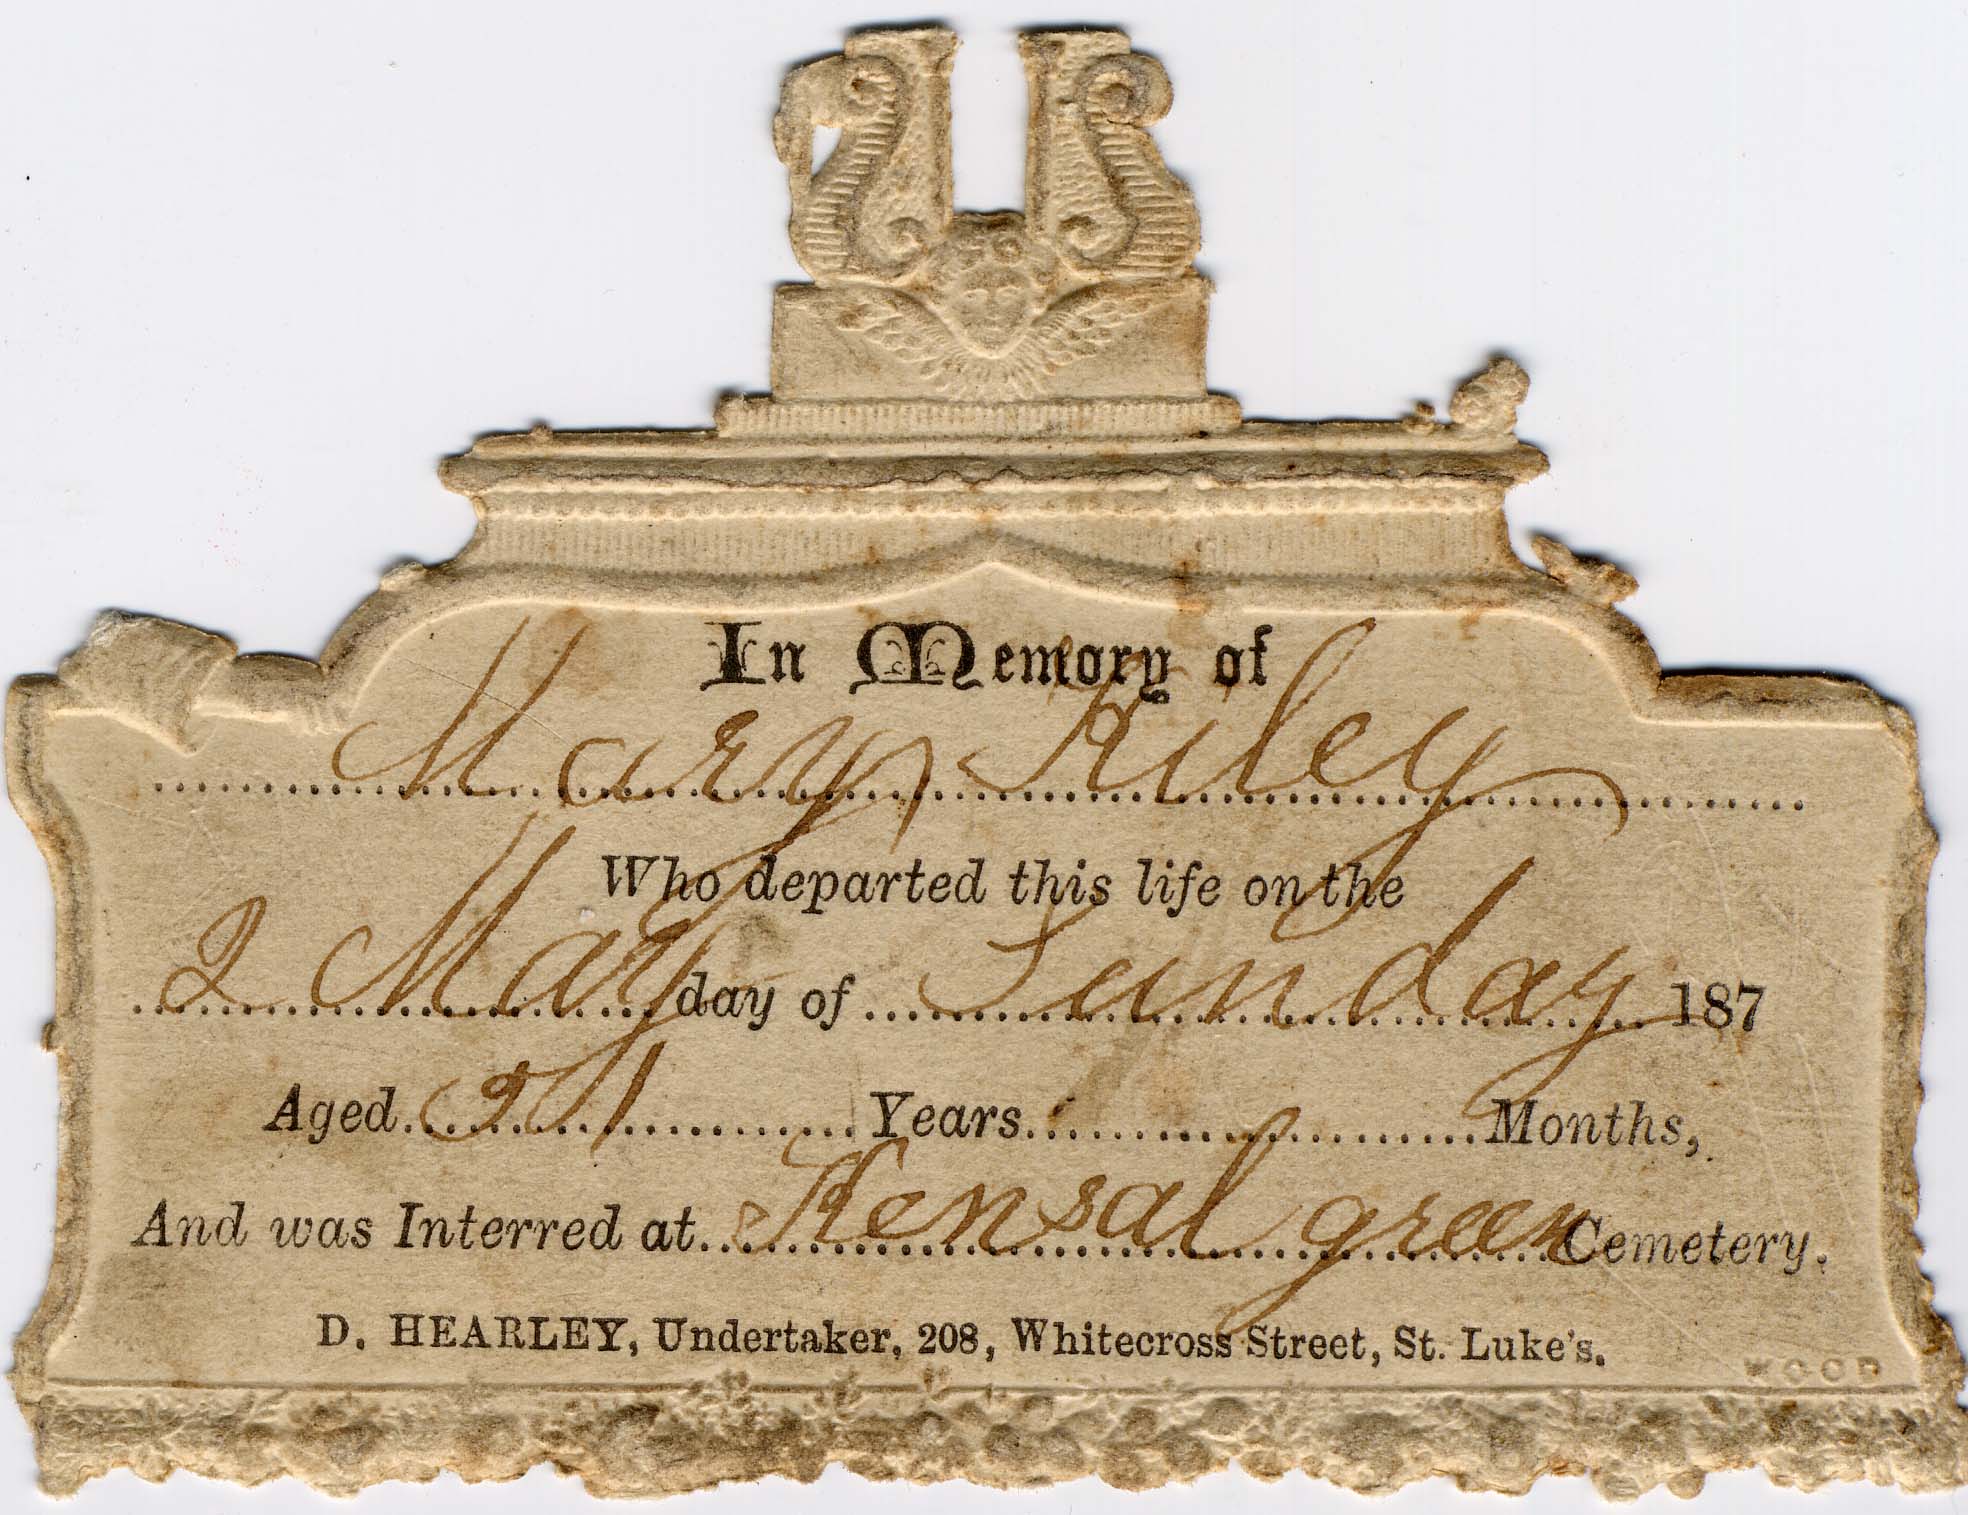 In Memory of
Mary Riley
Who departed this life on the
2 May day of Sunday 187
Aged 51 Years Months,
And was Interred at Kensal green Cemetery.
D. HEARLEY, Undertaker, 208, Whitecross Street, St. Luke's.
WOOD